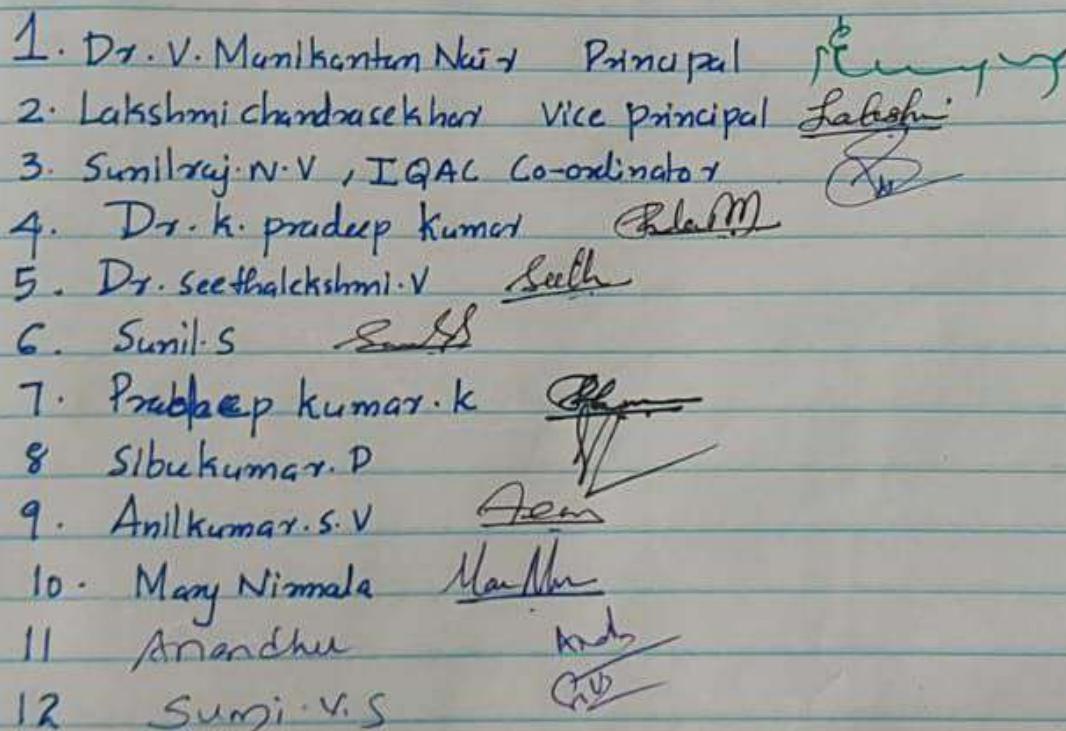 1. Dr. V. Manikantan Nair Principal
2. Lakshmi chandrasekhar Vice principal Lakshmi
3. Sunilraj. N. V , IQAC Co-ordinator
4. Dr. K. pradeep Kumar
5. Dr. seethalekshmi. V Seeth
6. Sunil. S
7. Pradeep kumar. k
8 Sibukumar. D
9. Anilkumar. S. V
10. Mary Nirmala
11 Anandhu
12 Sumi. V. S